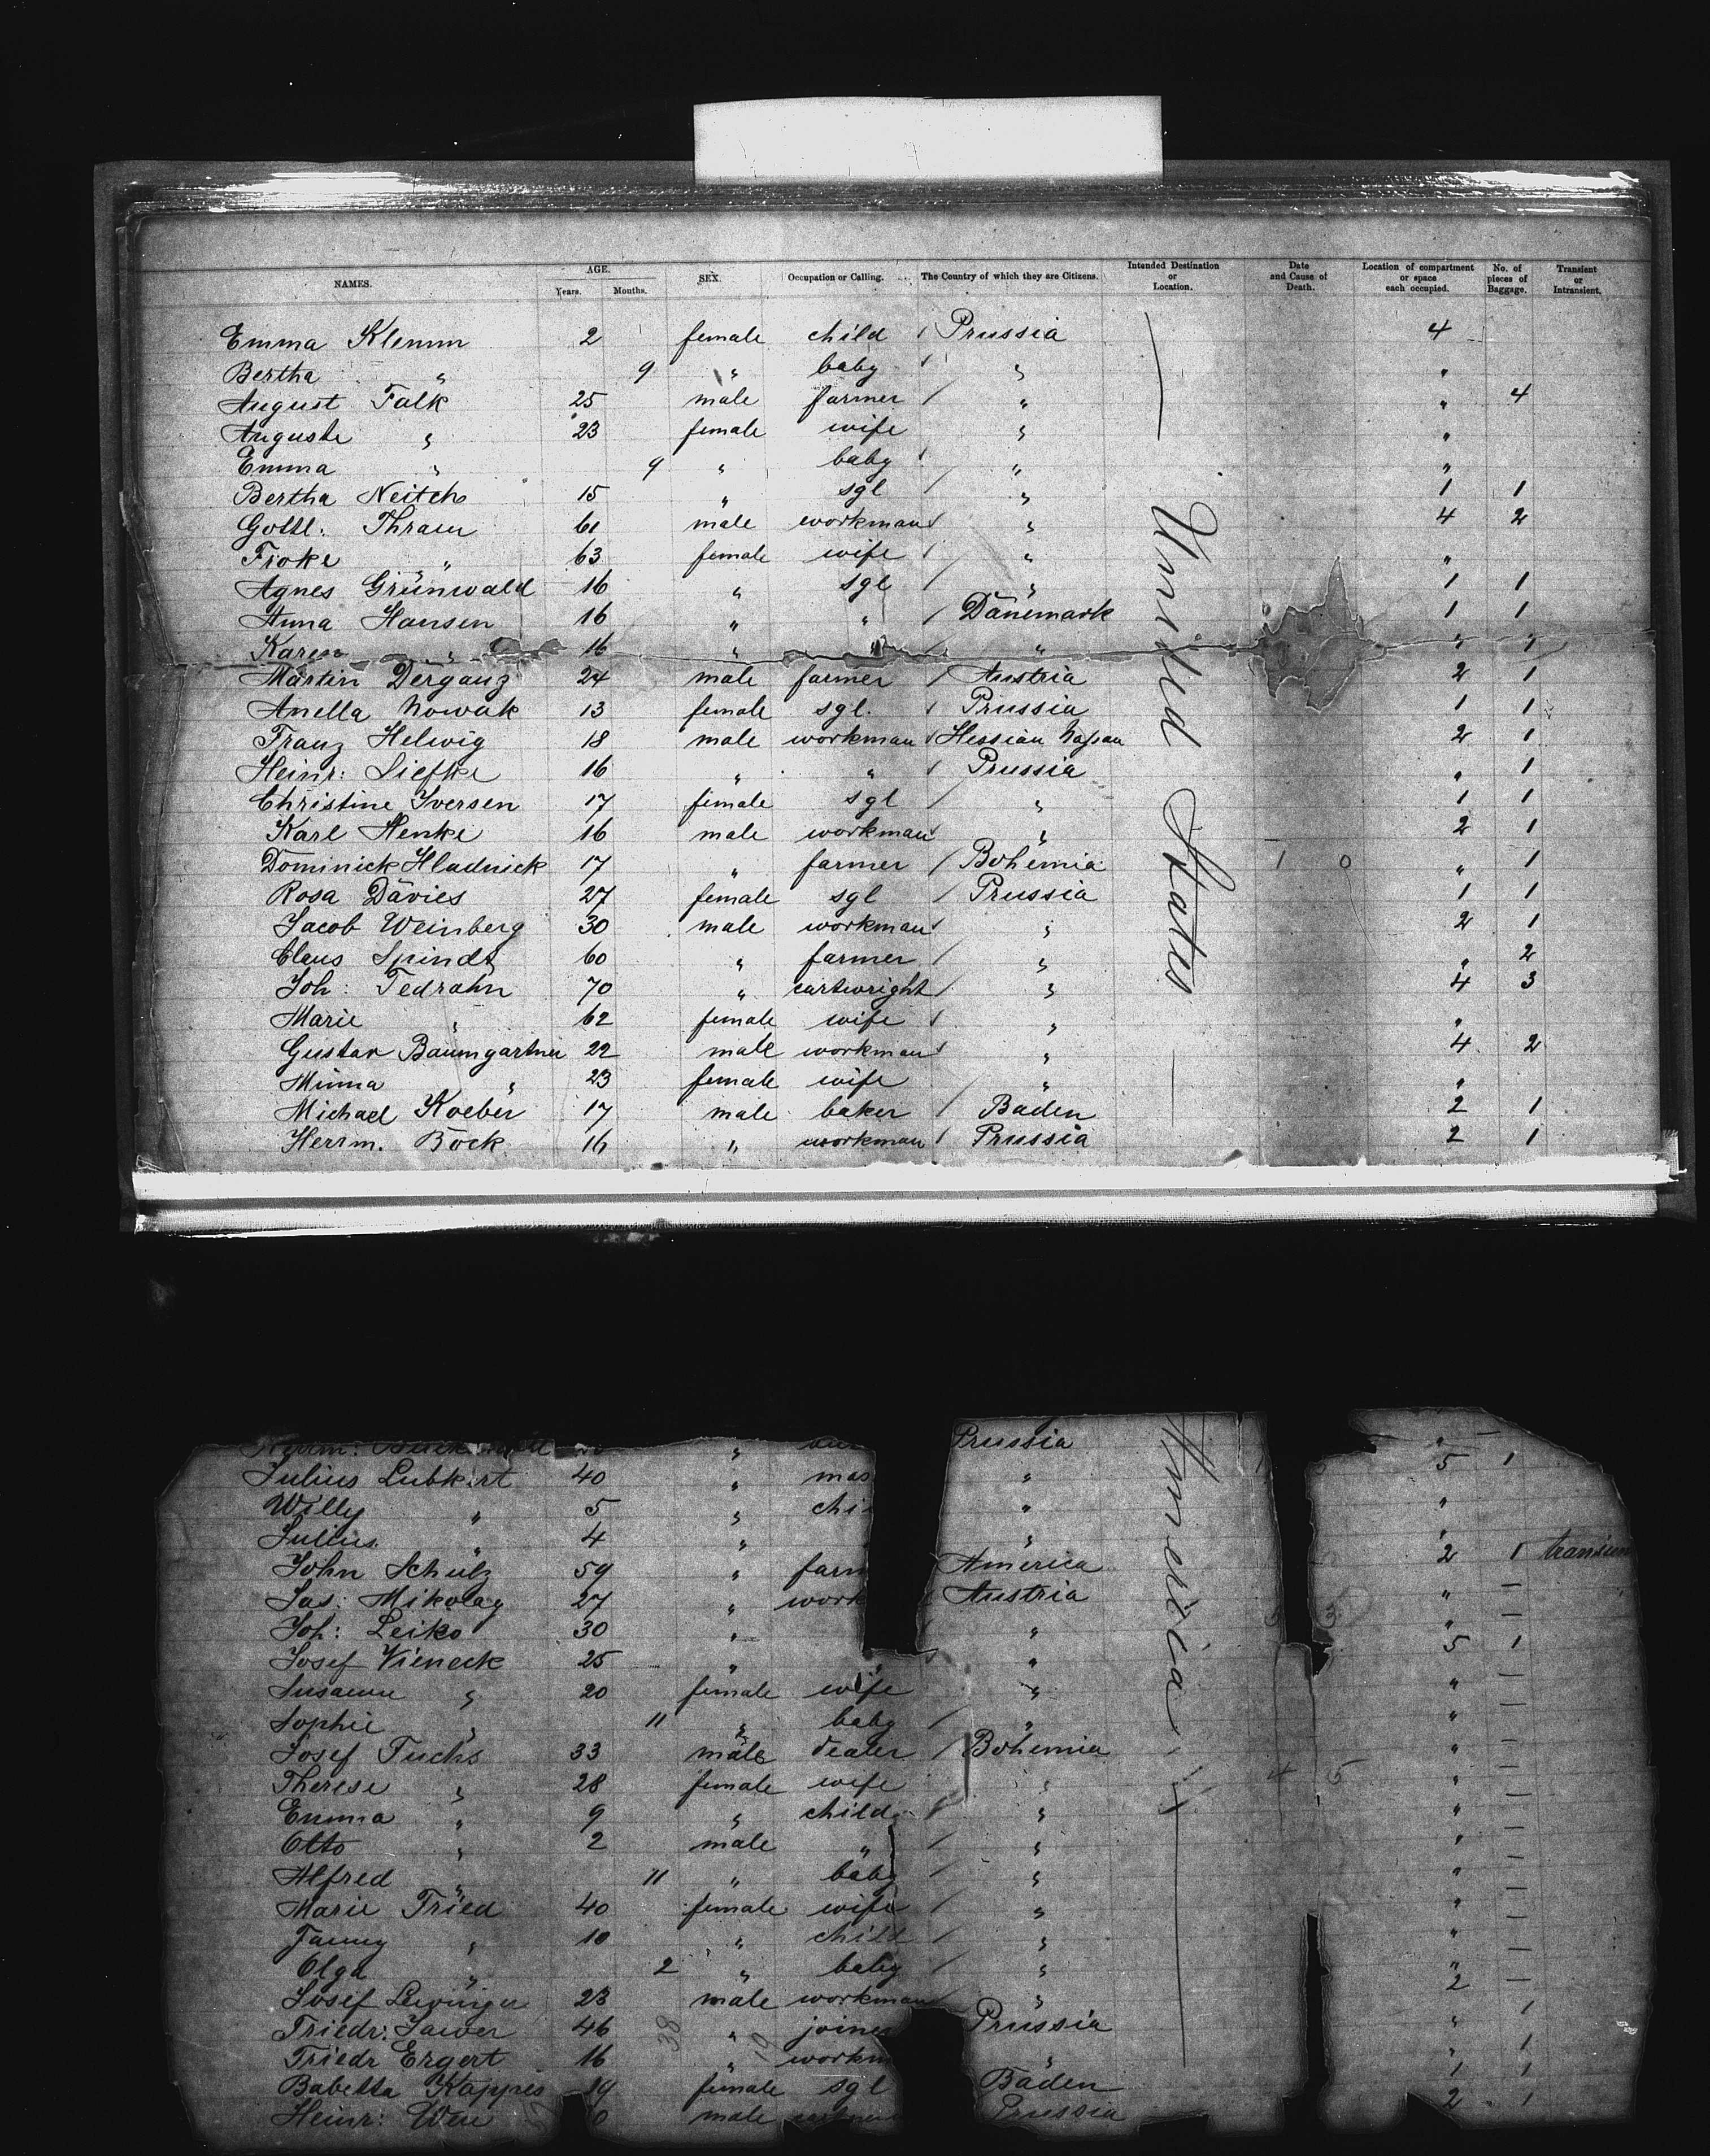 NAMES. AGE. Years. Months. SEX. Occupation or Calling. The Country of which they are Citizens. Intended Destination or Location. Date and Cause of Death. Location of compartment or space each occupied. No. of pieces of Baggage. Transient or Intransient.
Emma Klemm 2 female child / Prussia 4
Bertha " 9 " baby / " "
August Falk 25 male farmer / " " 4
Auguste " 23 female wife " "
Emma " 9 " baby / " "
Bertha Neitch 15 " sgl / " 1 1
Gottl: 61 male workman / " 4 2
" 63 female wife / " "
Agnes Grünwald 16 " sgl / " 1 1
Anna Hansen 16 " " / Dänemark 1 1
Karen " 16 " " / " " 1
Martin Derganz 24 male farmer / Austria 2 1
Anella Nowak 13 female sgl. / Prussia 1 1
Franz Helwig 18 male workman / Hessian Nassau 2 1
Heinr: Liefke 16 " " / Prussia " 1
Christine Iversen 17 female sgl / " 1 1
Karl Henke 16 male workman / " 2 1
Dominick Hladnick 17 " farmer / Bohemia 1 0 " 1
Rosa Davies 27 female sgl / Prussia 1 1
Jacob Weinberg 30 male workman / " 2 1
Claus Spindt 60 " farmer / " " 2
Joh: Tedrahn 70 " cartwright / " 4 3
Marie " 62 female wife / " "
Gustav Baumgartner 22 male workman / " 4 2
Minna " 23 female wife " "
Michael Koeber 17 male baker / Baden 2 1
Herrm. Böck 16 " workman / Prussia 2 1
United States
Herrm: " Prussia " —
Julius Lubkert 40 " mas " 5 1
Willy " 5 " chi " "
Julius " 4 " " "
John Schulz 59 " farm America 2 1 transien
Jas: Mikolay 27 " work Austria " —
Joh: Leiko 30 " " " —
Josef Vieneck 25 " " " 5 1
Susanne " 20 female wife " " —
Sophie " 11 " baby / " " —
Josef Fuchs 33 male dealer / Bohemia " —
Therese " 28 female wife " 4 5 " —
Emma " 9 " child " " —
Otto " 2 male " / " " —
Alfred " 11 " baby / " " —
Marie Fried 40 female wife / " " —
Fanny " 10 " child / " " —
Olga " 2 " baby / " " —
Josef 23 male workman " 2 —
Friedr: 46 " joiner Prussia " 1
Friedr Ergert 16 " workm " " 1
Babetta Kappes 19 female sgl Baden 1 1
Heinr: male Prussia 2 1
America